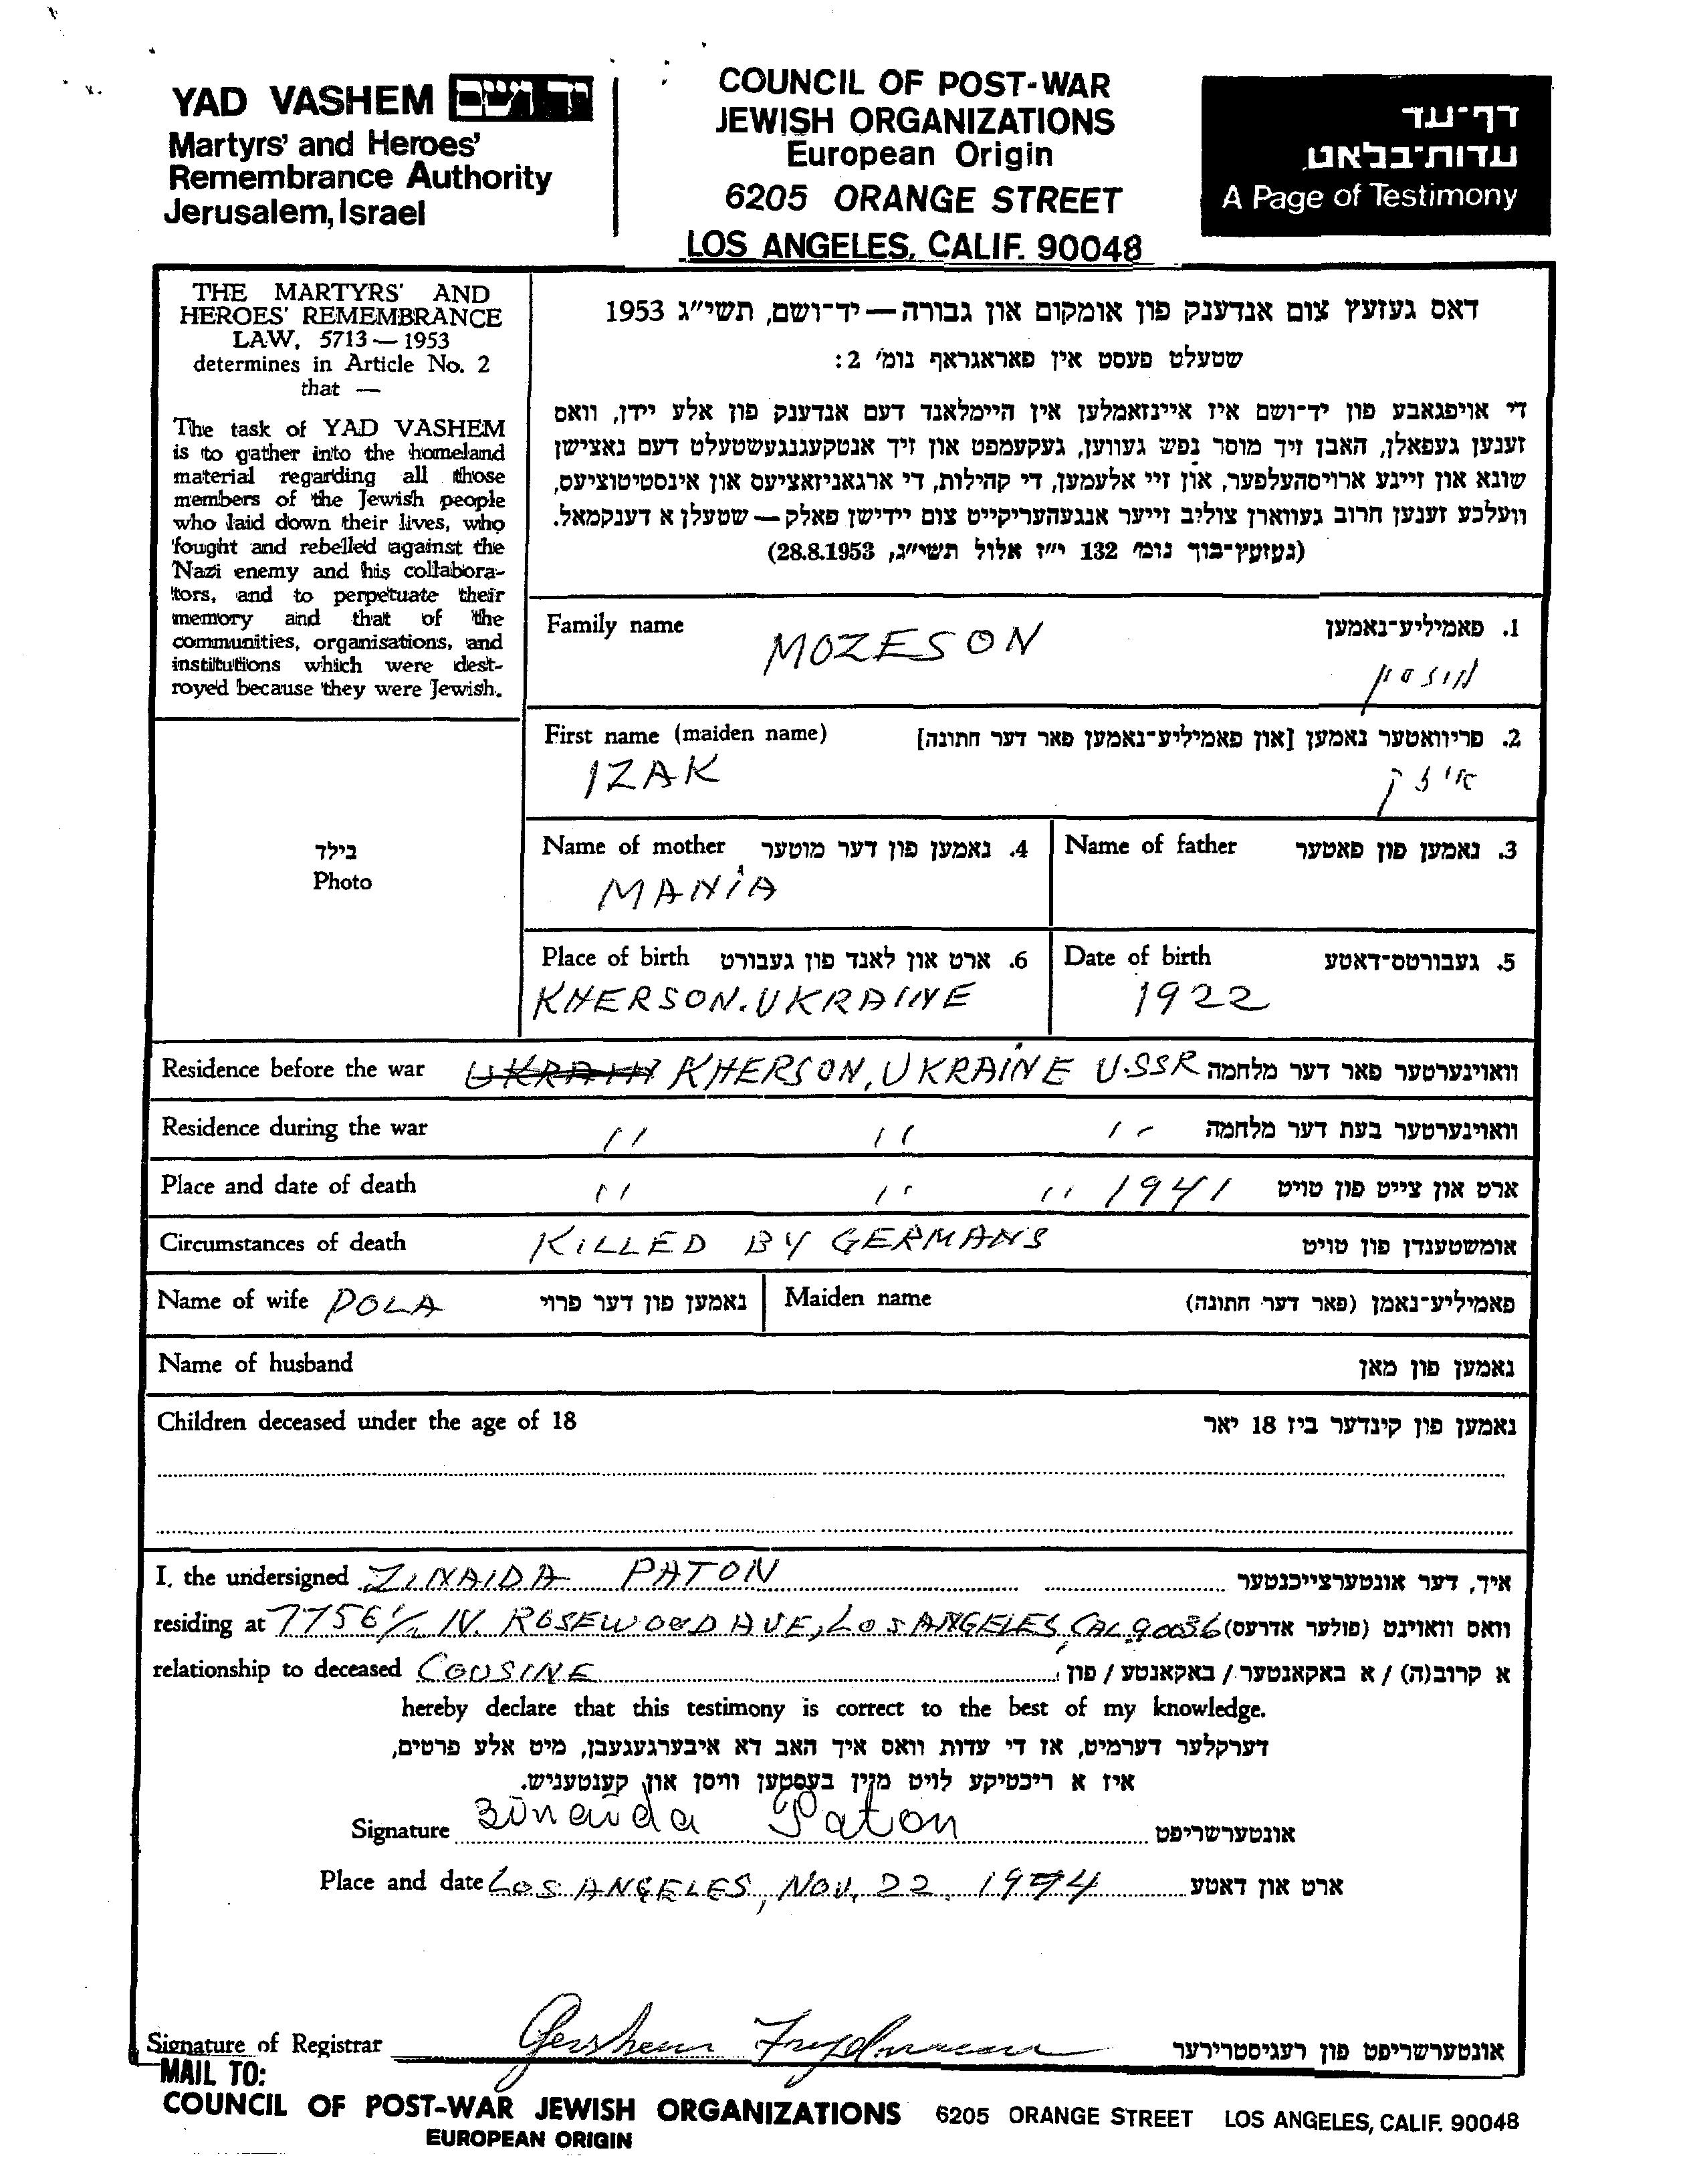 YAD VASHEM יד ושם
Martyrs' and Heroes'
Remembrance Authority
Jerusalem, Israel
COUNCIL OF POST-WAR
JEWISH ORGANIZATIONS
European Origin
6205 ORANGE STREET
LOS ANGELES, CALIF. 90048
דף-עד
עדות-בלאט
A Page of Testimony
THE MARTYRS' AND
HEROES' REMEMBRANCE
LAW, 5713 — 1953
determines in Article No. 2
that —
The task of YAD VASHEM
is to gather into the homeland
material regarding all those
members of the Jewish people
who laid down their lives, who
fought and rebelled against the
Nazi enemy and his collabora-
tors, and to perpetuate their
memory and that of the
communities, organisations, and
institutions which were dest-
royed because they were Jewish.
דאס געזעץ צום אנדענק פון אומקום און גבורה — יד-ושם, תשי״ג 1953
שטעלט פעסט אין פאראגראף נומ׳ 2:
די אויפגאבע פון יד-ושם איז איינזאמלען אין היימלאנד דעם אנדענק פון אלע יידן, וואס
זענען געפאלן, האבן זיך מוסר נפש געווען, געקעמפט און זיך אנטקעגנגעשטעלט דעם נאצישן
שונא און זיינע ארויסהעלפער, און זיי אלעמען, די קהילות, די ארגאניזאציעס און אינסטיטוציעס,
וועלכע זענען חרוב געווארן צוליב זייער אנגעהעריקייט צום יידישן פאלק — שטעלן א דענקמאל.
(געזעץ-בוך נומ׳ 132 י״ז אלול תשי״ג, 28.8.1953)
Family name MOZESON 1. פאמיליע-נאמען
מוזסון
First name (maiden name) 2. פריוואטער נאמען [און פאמיליע-נאמען פאר דער חתונה]
IZAK איזק
בילד
Photo
Name of mother 4. נאמען פון דער מוטער
MANIA
Name of father 3. נאמען פון פאטער
Place of birth 6. ארט און לאנד פון געבורט
KHERSON. UKRAINE
Date of birth 5. געבורטס-דאטע
1922
Residence before the war UKRAIN KHERSON, UKRAINE U.SSR וואוינערטער פאר דער מלחמה
Residence during the war 〃 〃 〃 וואוינערטער בעת דער מלחמה
Place and date of death 〃 〃 〃 1941 ארט און צייט פון טויט
Circumstances of death KILLED BY GERMANS אומשטענדן פון טויט
Name of wife POLA נאמען פון דער פרוי
Maiden name פאמיליע-נאמן (פאר דער חתונה)
Name of husband נאמען פון מאן
Children deceased under the age of 18 נאמען פון קינדער ביז 18 יאר
I, the undersigned ZINAIDA PATON איך, דער אונטערצייכנטער
residing at 7756 1/2 N. ROSEWOOD AVE, LOS ANGELES, CAL. 90036 וואס וואוינט (פולער אדרעס)
relationship to deceased COUSINE א קרוב(ה) / א באקאנטער / באקאנטע / פון
hereby declare that this testimony is correct to the best of my knowledge.
דערקלער דערמיט, אז די עדות וואס איך האב דא איבערגעגעבן, מיט אלע פרטים,
איז א ריכטיקע לויט מיין בעסטען וויסן און קענטעניש.
Signature Zinaida Paton אונטערשריפט
Place and date LOS ANGELES, NOV. 22, 1974 ארט און דאטע
Signature of Registrar Gershem Frydman אונטערשריפט פון רעגיסטרירער
MAIL TO:
COUNCIL OF POST-WAR JEWISH ORGANIZATIONS 6205 ORANGE STREET LOS ANGELES, CALIF. 90048
EUROPEAN ORIGIN